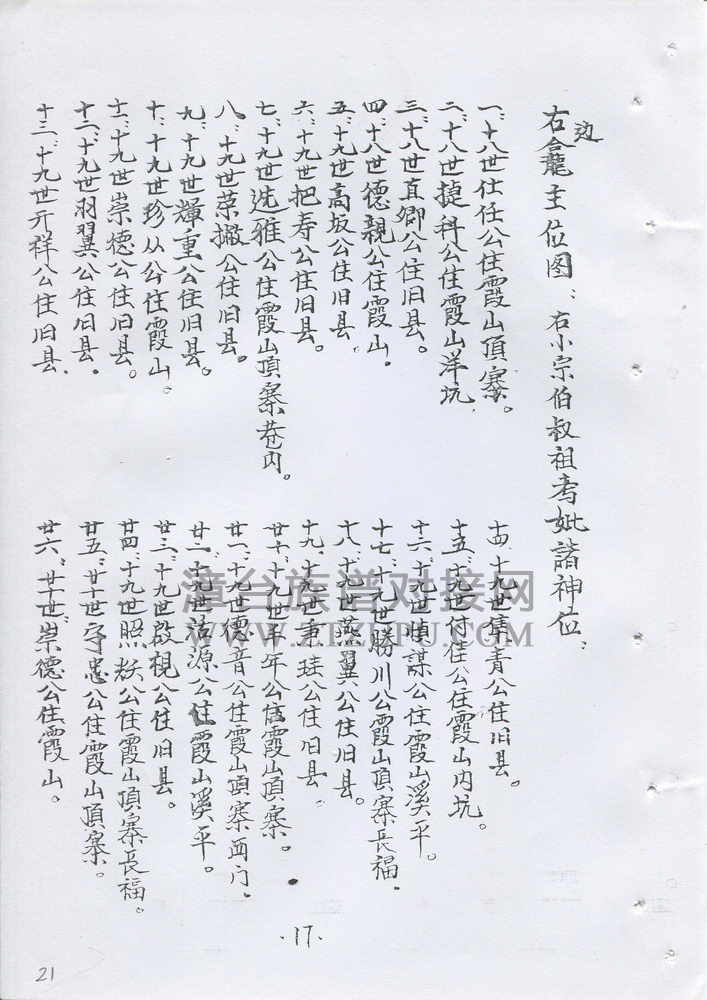 右边龕主位图：右小宗伯叔祖考妣諸神位：
一：十八世仕任公住霞山頂寨。
二：十八世捷科公住霞山洋坑
三：十八世直卿公住旧县。
四：十八世德親公住霞山。
五：十九世高坂公住旧县
六：十九世把寿公住旧县。
七：十九世选雅公住霞山頂寨巷内。
八：十九世荣撇公住旧县。
九：十九世輝重公住旧县。
十：十九世珍从公住霞山。
十一：十九世崇德公住旧县。
十二：十九世羽翼公住旧县．
十三：十九世开群公住旧县．
十四：十九世集青公住旧县。
十五：十九世付佳公住霞山内坑。
十六：十九世慎謀公住霞山溪平。
十七：十九世勝川公霞山頂寨長福．
十八：十九世燕翼公住旧县。
十九：十九世秉珪公住旧县
二十：十九世年公住霞山頂寨．
廿一：十九世德音公住霞山頂寨西门．
廿二：十九世活源公住霞山溪平。
廿三：十九世啟視公住旧县。
廿四：十九世照公住霞山頂寨長福。
廿五：廿世守忠公住霞山頂寨。
廿六：廿世崇德公住霞山。
漳台族谱对接网
WWW.ZTZUPU.COM
·17·
21